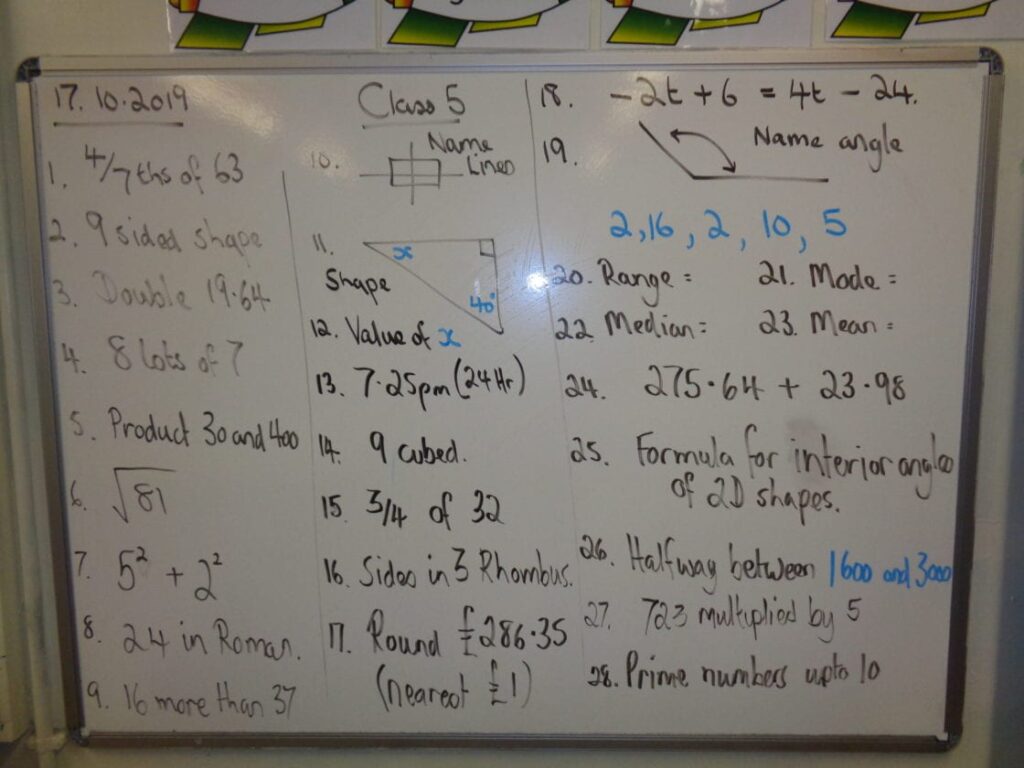 17.10.2019
Class 5
1. 4/7ths of 63
2. 9 sided shape
3. Double 19.64
4. 8 lots of 7
5. Product 30 and 400
6. √81
7. 5² + 2²
8. 24 in Roman.
9. 16 more than 37
10. Name
Lines
11.
x
Shape
40°
12. Value of x
13. 7.25pm (24Hr)
14. 9 cubed.
15. 3/4 of 32
16. Sides in 3 Rhombus.
17. Round £286.35
(nearest £1)
18. -2t + 6 = 4t - 24.
19. Name angle
2, 16, 2, 10, 5
20. Range = 21. Mode =
22. Median = 23. Mean =
24. 275.64 + 23.98
25. Formula for interior angles
of 2D shapes.
26. Halfway between 1600 and 3000
27. 723 multiplied by 5
28. Prime numbers upto 10